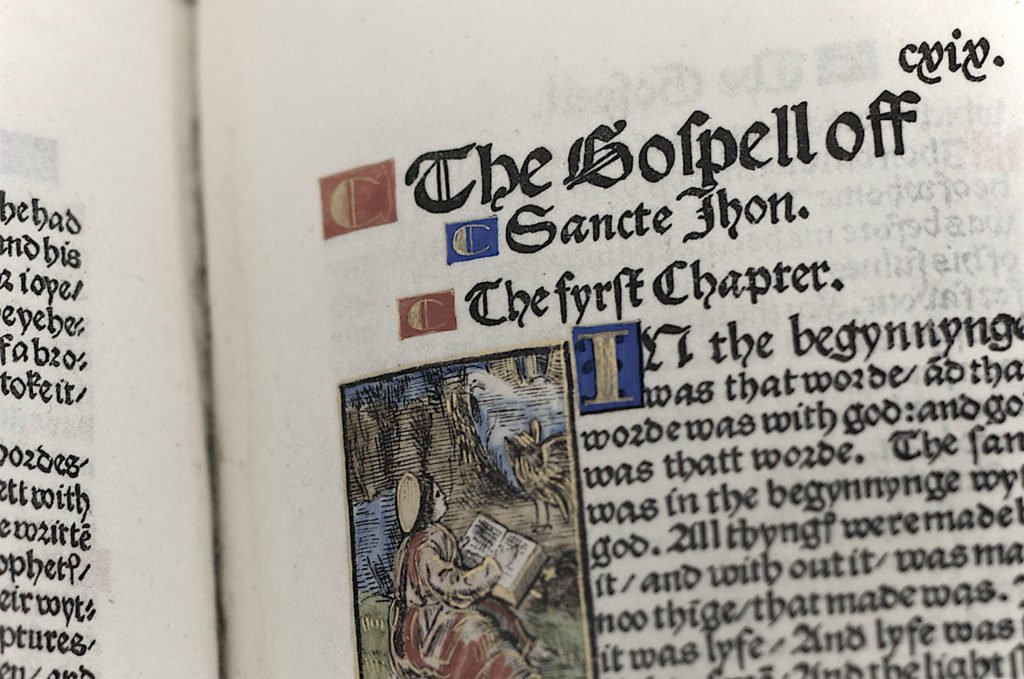 he had
and his
ioye/
eyehe:
fabro:
toke it/
wordes/
ett with
writtē
ophetꝭ/
eir wyt:
ptures/
en/and
cxix.
C The Goſpell off
C Sancte Jhon.
C The fyrſt Chapter.
IN the begynnynge
was that worde/ ād tha
worde was with god: and go
was thatt worde. The ſan
was in the begynnynge wyt
god. All thyngꝭ were made b
it/ and with out it/ was ma
noo thige/ that made was.
it was lyfe/ And lyfe was
And the light